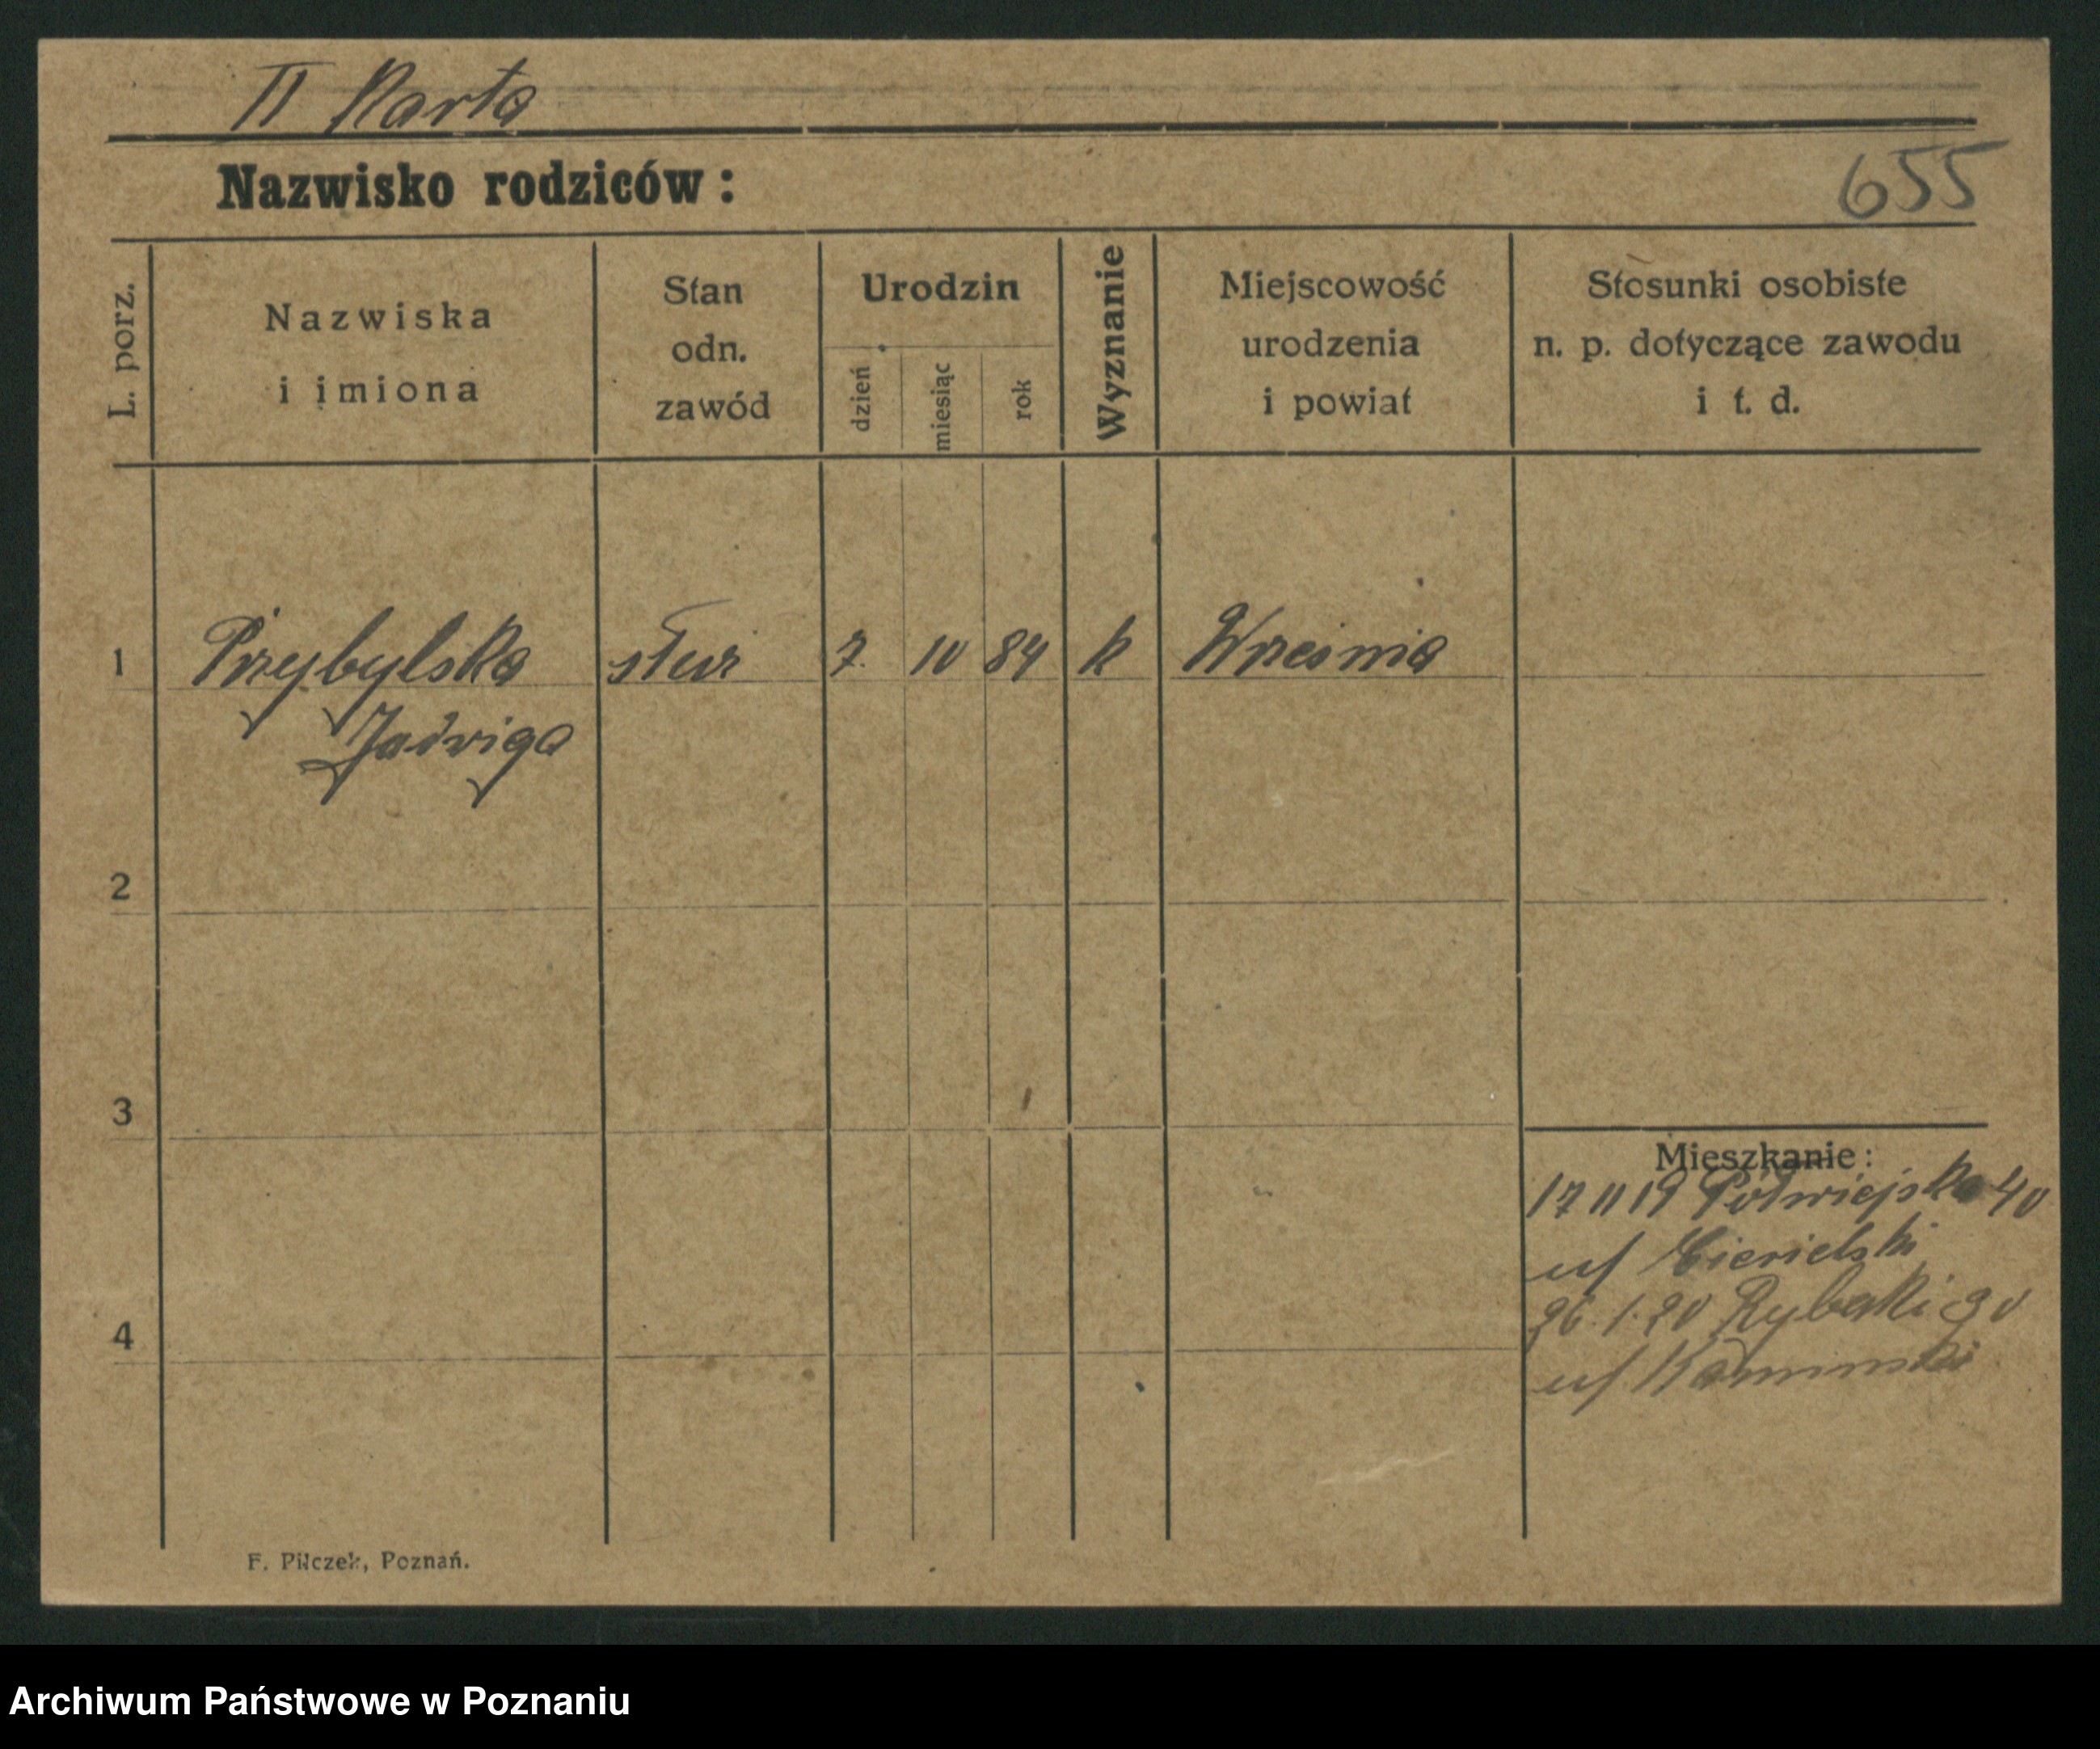 II Karta
Nazwisko rodziców:
655
L. porz.
Nazwiska
i imiona
Stan
odn.
zawód
Urodzin
dzień
miesiąc
rok
Wyznanie
Miejscowość
urodzenia
i powiat
Stosunki osobiste
n. p. dotyczące zawodu
i t. d.
1 Przybylska służ 7. 10 84 k Września
Jadwiga
2
3
4
Mieszkanie:
17 11 19 Półwiejska 40
26.1.20 Rybaki
F. Pilczek, Poznań.
Archiwum Państwowe w Poznaniu